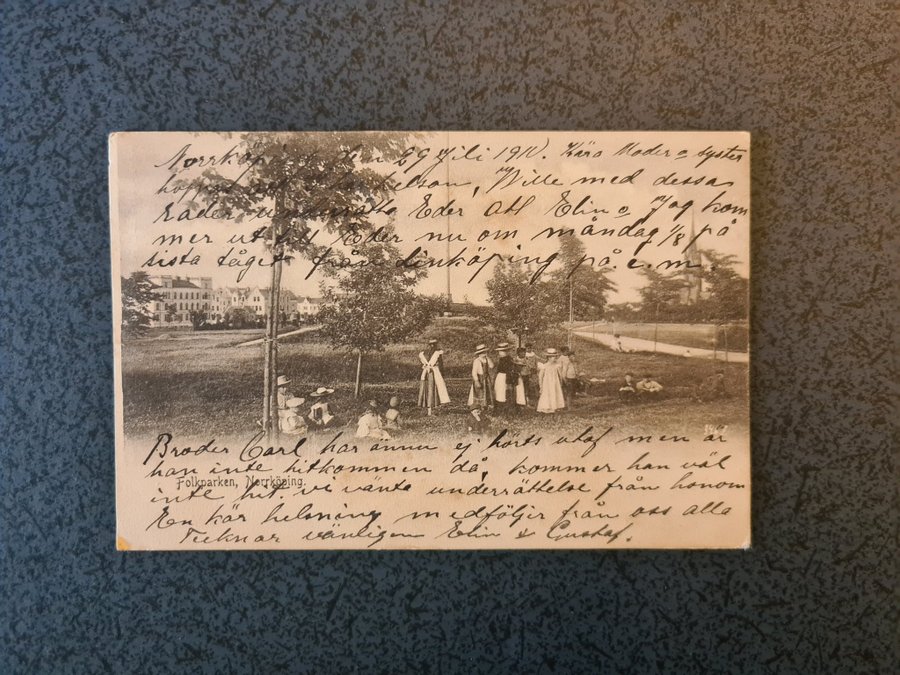 Norrköping den 29 Juli 1910. Kära Moder o syster
Wille med dessa
rader underrätta Eder att Elin o Jag kom
mer ut till Eder nu om måndag 1/8 på
sista tåget från Linköping på e. m.
Broder Carl, har ännu ej hörts utaf men är
han inte hitkommen då, kommer han väl
inte hit. vi vänta underrättelse från honom
Folkparken, Norrköping.
En kär helsning medföljer från oss alla
Tecknar vänligen Elin & Gustaf.